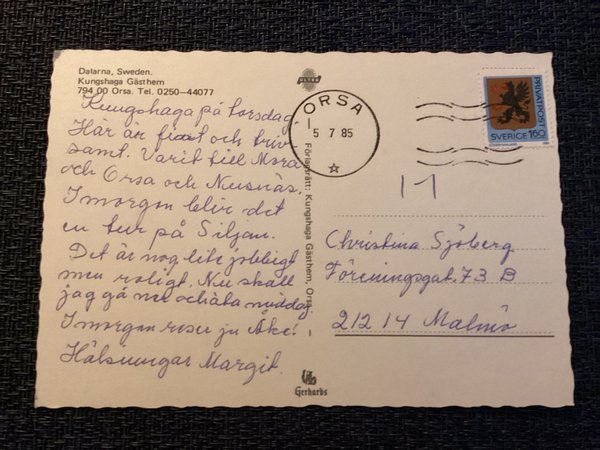 Dalarna, Sweden.
Kungshaga Gästhem
794 00 Orsa. Tel. 0250—44077
Kungshaga på torsdag
Här är fint och triv
samt. Varit till Mora
och Orsa och Nusnäs.
I morgon blir det
en tur på Siljan.
Det är nog lite jobbigt
men roligt. Nu skall
jag gå ner och äta middag
I morgon reser ju Åke!
Hälsningar Margit.
ULTRA
Förlagsrätt: Kungshaga Gästhem, Orsa
Gerhards
ORSA
5 7 85
PRIVATPOST
SVERIGE 160
Christina Sjöberg
Föreningsgat. 73 B
212 14 Malmö